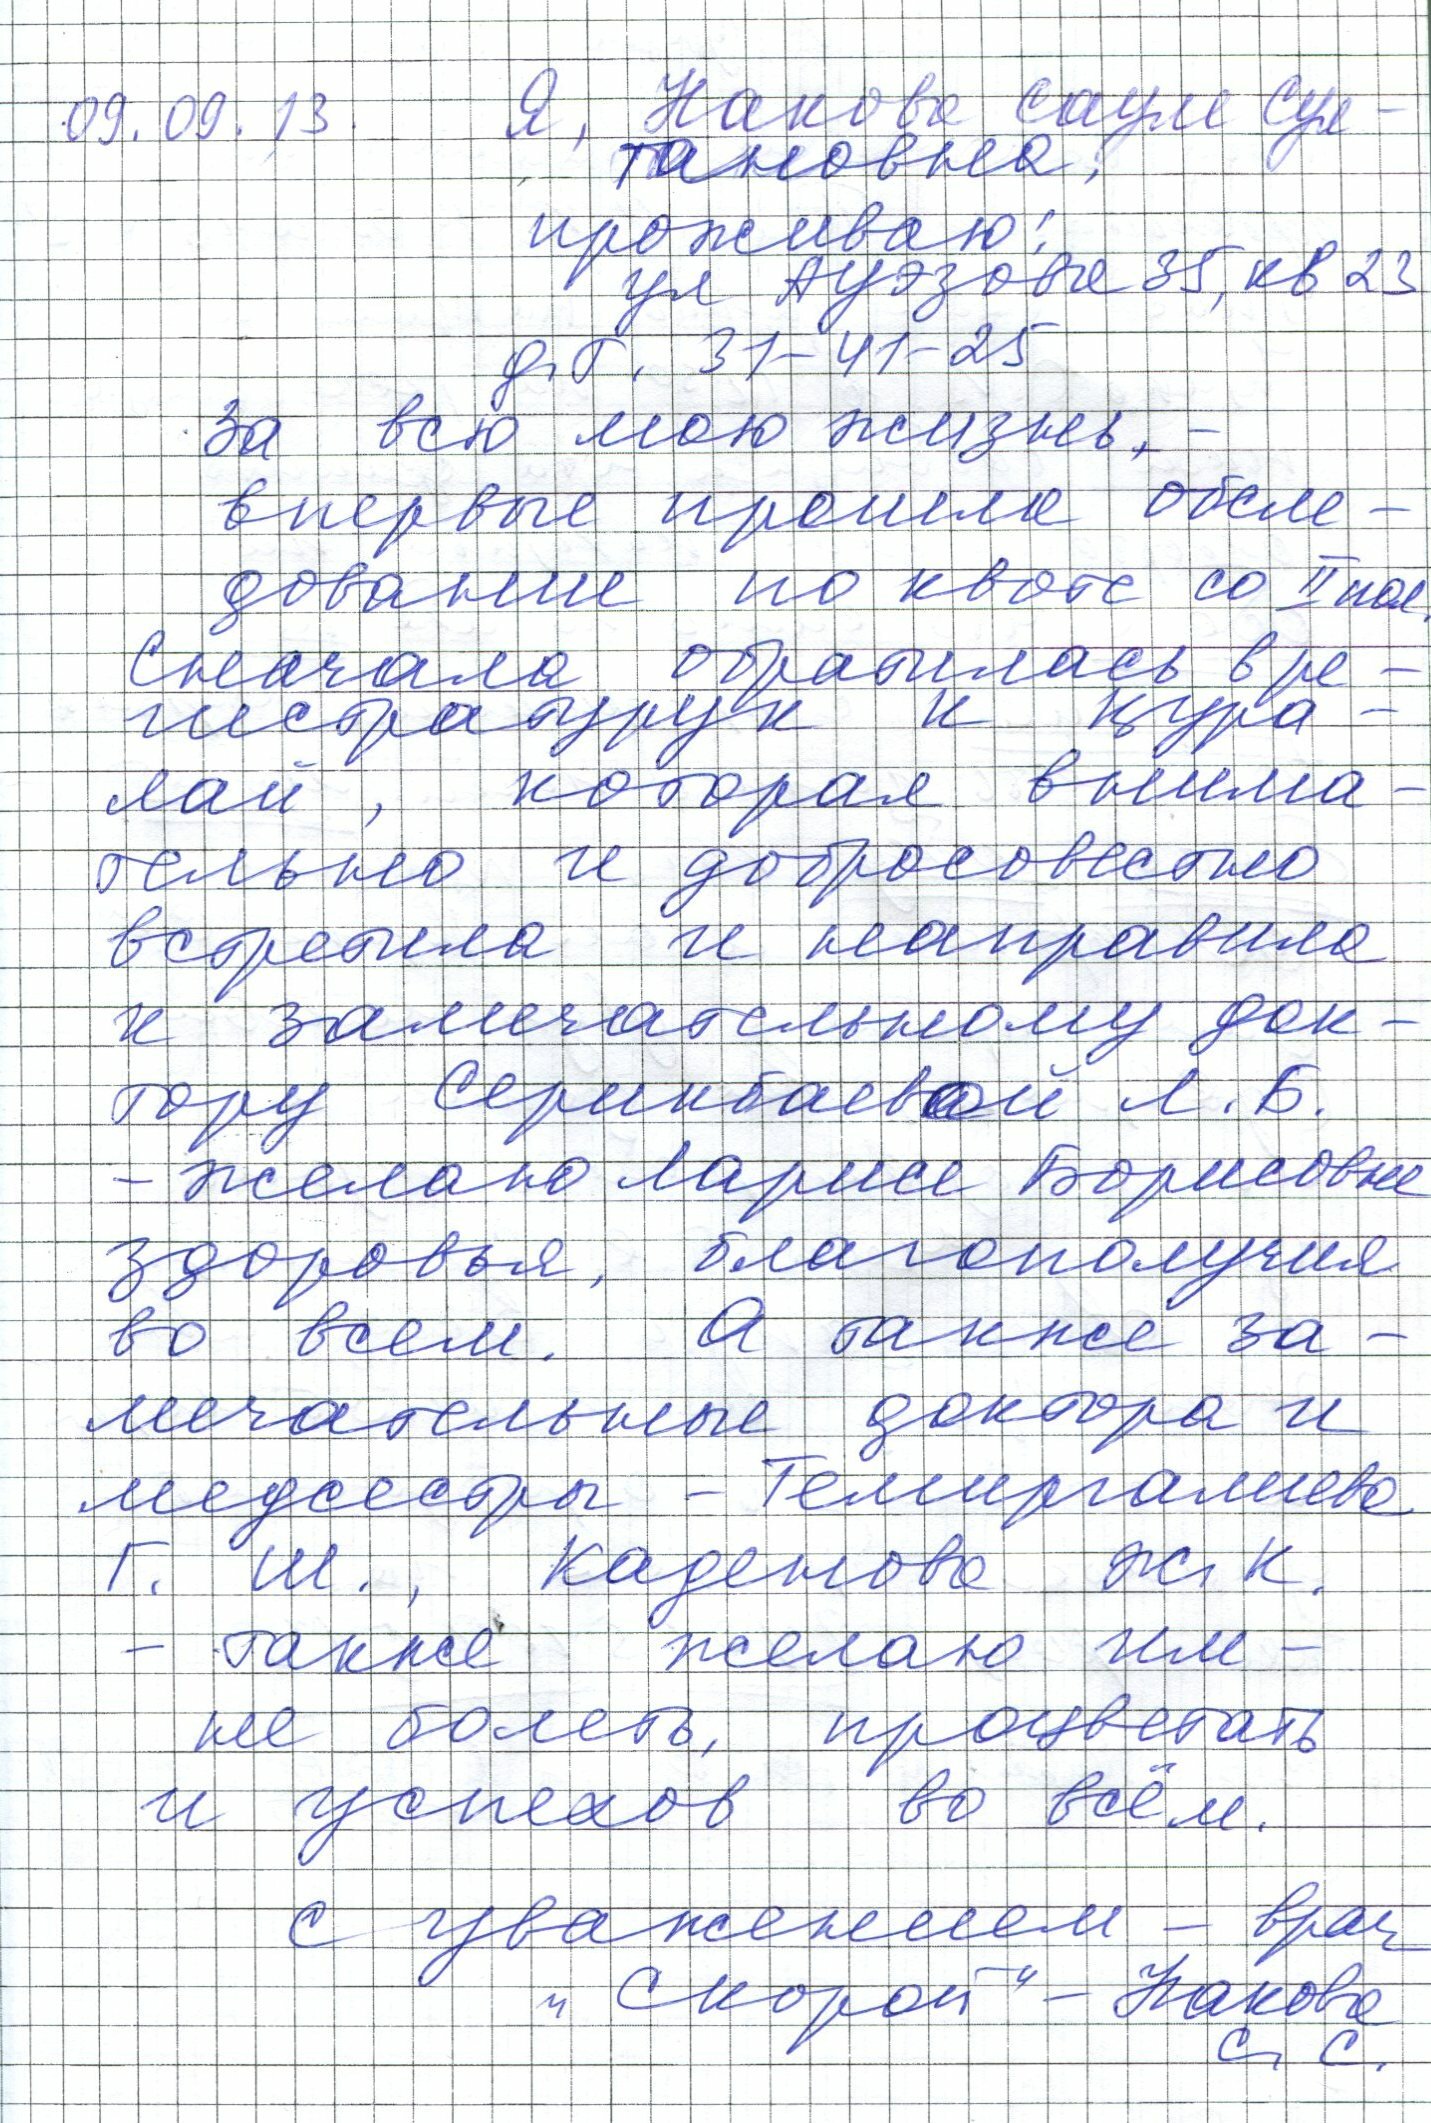 09.09.13. Я, Накова Сауле Сул-
тановна,
проживаю:
ул Ауэзова 35, кв 23
д.т. 31-41-25
За всю мою жизнь, -
впервые прошла обсле-
дование по квоте со II пол.
Сначала обратилась в ре-
гистратуру к к Құра-
лай, которая внима-
тельно и добросовестно
встретила и направила
к замечательному док-
тору Серикбаевой Л.Б.
- желаю Ларисе Борисовне
здоровья, благополучия
во всем. А также за-
мечательные доктора и
медсестры - Темиргалиева
Г. Ш., Каденова Ж. К.
- также желаю им -
не болеть, процветать
и успехов во всём.
С уважением - врач
"Скорой" - Накова
С. С.